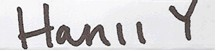 Hanii Y